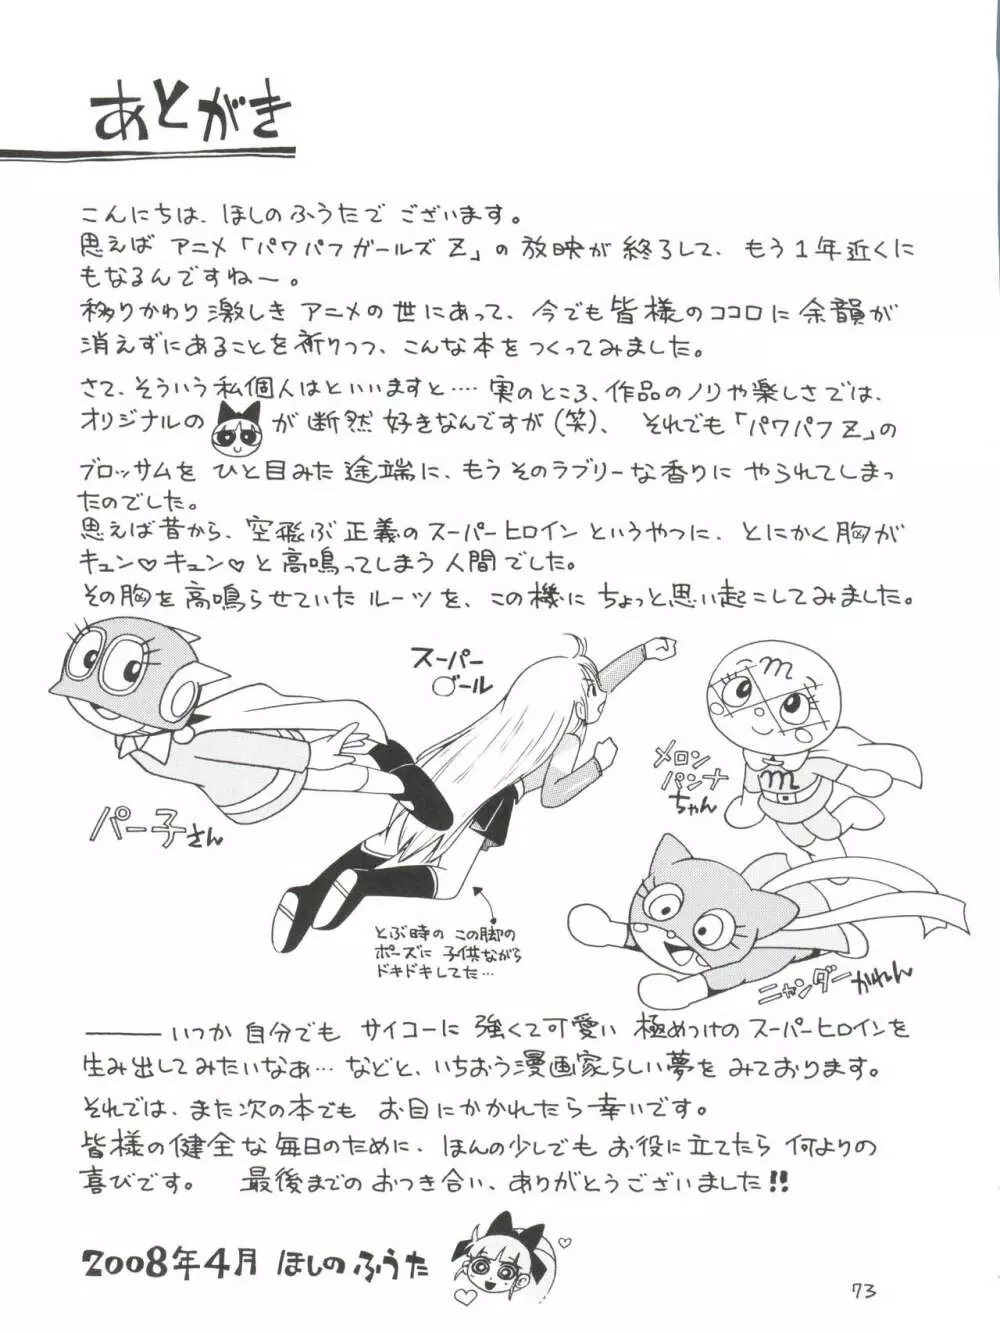 あとがき
こんにちは、ほしのふうたでございます。
思えばアニメ「パワパフガールズZ」の放映が終了して、もう1年近くに
もなるんですねー。
移りかわり激しきアニメの世にあって、今でも皆様のココロに余韻が
消えずにあることを祈りつつ、こんな本をつくってみました。
さて、そういう私個人はといいますと…‥実のところ、作品のノリや楽しさでは、
オリジナルの が断然好きなんですが(笑)、それでも「パワパフZ」の
ブロッサムをひと目みた途端に、もうそのラブリーな香りにやられてしまっ
たのでした。
思えば昔から、空飛ぶ正義のスーパーヒロインというやつに、とにかく胸が
キュン♡キュン♡と高鳴ってしまう人間でした。
その胸を高鳴らせていたルーツを、この機にちょっと思い起こしてみました。
パー子さん
スーパー
○゛ール
メロン
パンナ
ちゃん
m
m
とぶ時の この脚の
ポーズに 子供ながら
ドキドキしてた…
ニャンダーかめん
――いつか自分でもサイコーに強くて可愛い極めつけのスーパーヒロインを
生み出してみたいなぁ…などと、いちおう漫画家らしい夢をみております。
それでは、また次の本でもお目にかかれたら幸いです。
皆様の健全な毎日のために、ほんの少しでもお役に立てたら何よりの
喜びです。 最後までのおつき合い、ありがとうございました!!
2008年4月 ほしのふうた
73